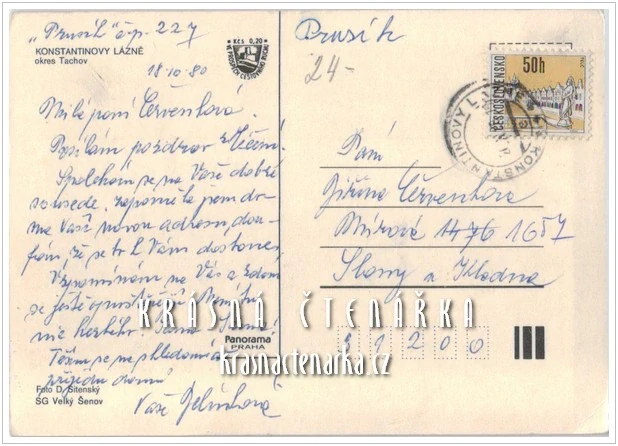 "Prusík" čp. 227
KONSTANTINOVY LÁZNĚ
okres Tachov
18.10.80
Kčs 0,20
Milá paní Červenková.
Posílám pozdrav z léčení.
Spoléhám se na Vaše dobré
sousede. zapoměla jsem do-
ma Vaší novou adresu, dou-
fám, že se to k Vám dostane.
Vzpomínám na Vás a
se ještě
nie
Těším se na shledanou až
přijedu domů
Vaše
Foto D. Šitenský
SG Velký Šenov
Panorama
PRAHA
Prusík
24-
50h
ČESKOSLOVENSKO
KONSTANTINOVY L
Paní
Jiřina Červenková
Mírová 1476 1657
Slaný u Kladna
KRÁSNÁ ČTENÁŘKA
krasnactenarka.cz
01200